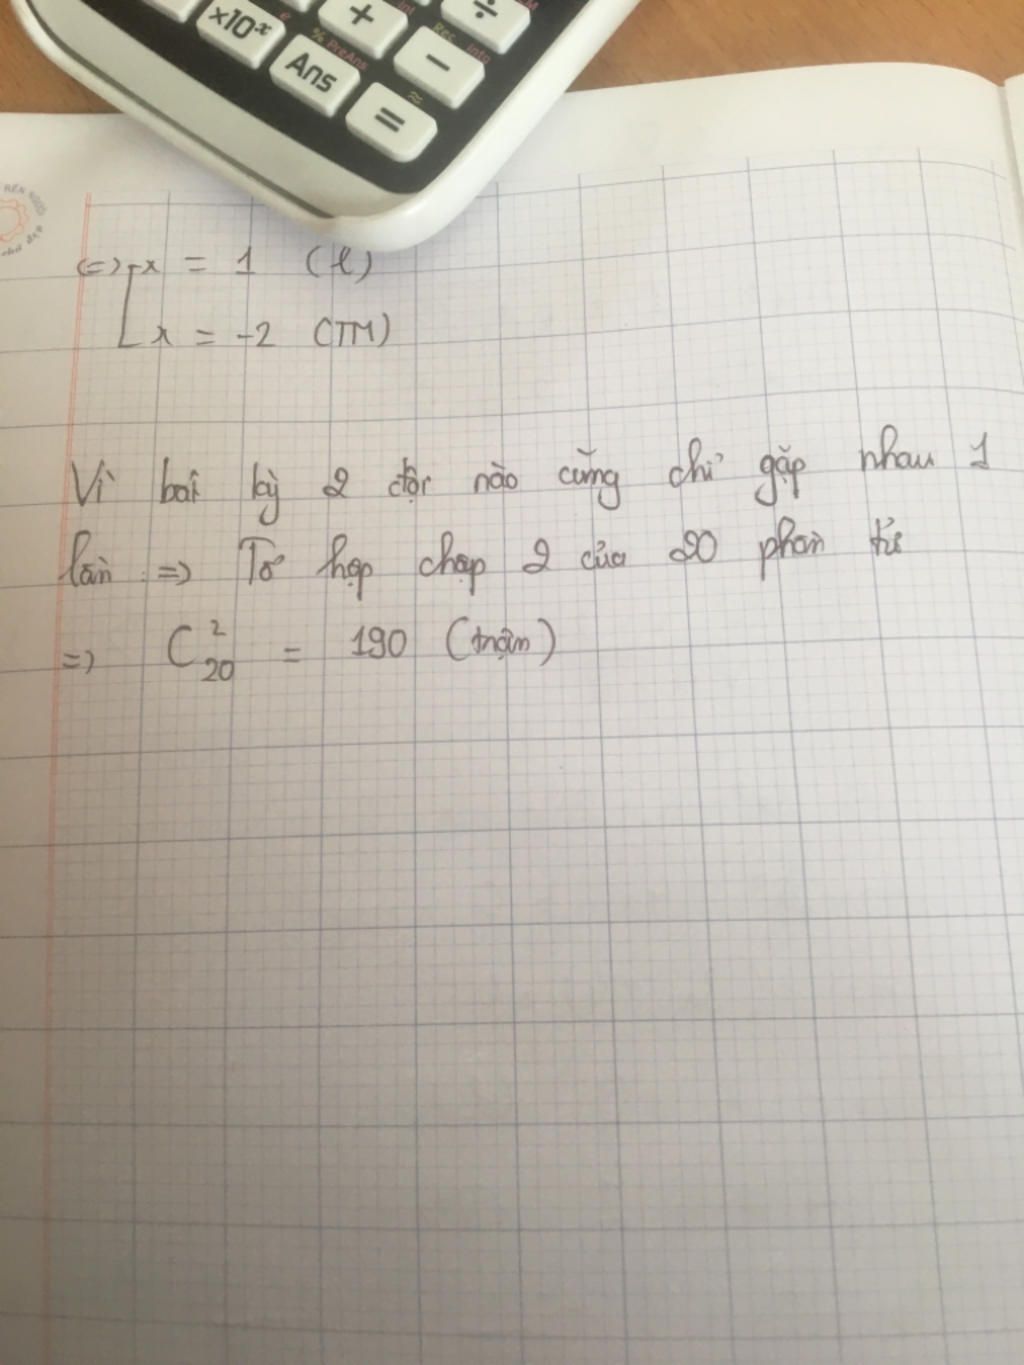 ×10ˣ
Ans
+
÷
−
=
% PreAns
Int
Rec
Info
≈
RÈN NGƯỜI
(=) x = 1 (l)
x = -2 (TM)
Vì bất kỳ 2 đội nào cũng chỉ gặp nhau 1
lần => Tổ hợp chập 2 của 20 phần tử
=> C²₂₀ = 190 (trận)